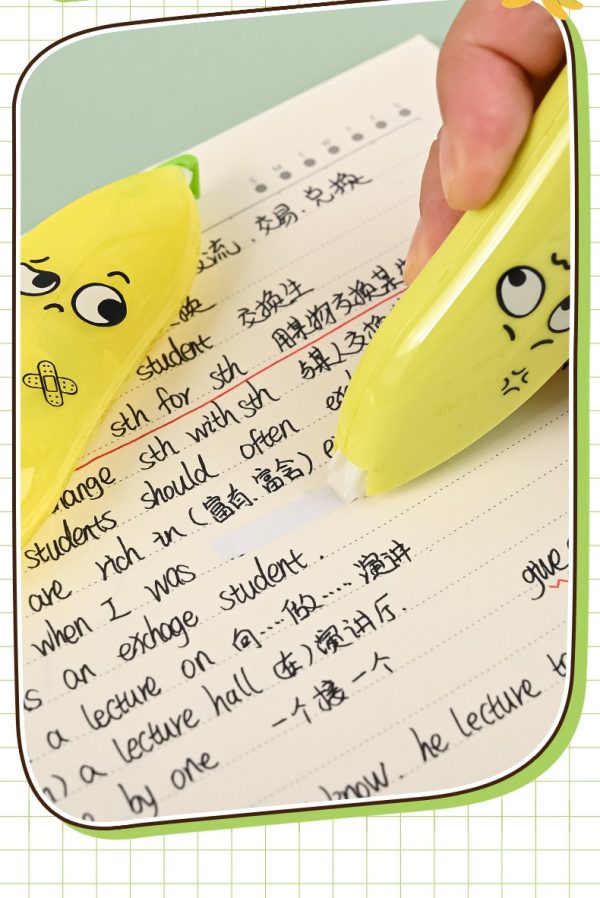 S M T W T F S
交流.交易.兑换
换 交换生
student 用某物交换某
sth for sth 与某人交换
hange sth with sth
students should often ex
are rich in (富有.富含)
when I was
s an exchage student.
a lecture on 向....做..... 演讲 give
) a lecture hall (在)演讲厅.
by one 一个接一个
know. he lecture to